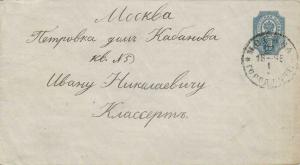 Москва
Петровка домъ Кабанова
кв. №5)
Ивану Николаевичу
Классертъ.